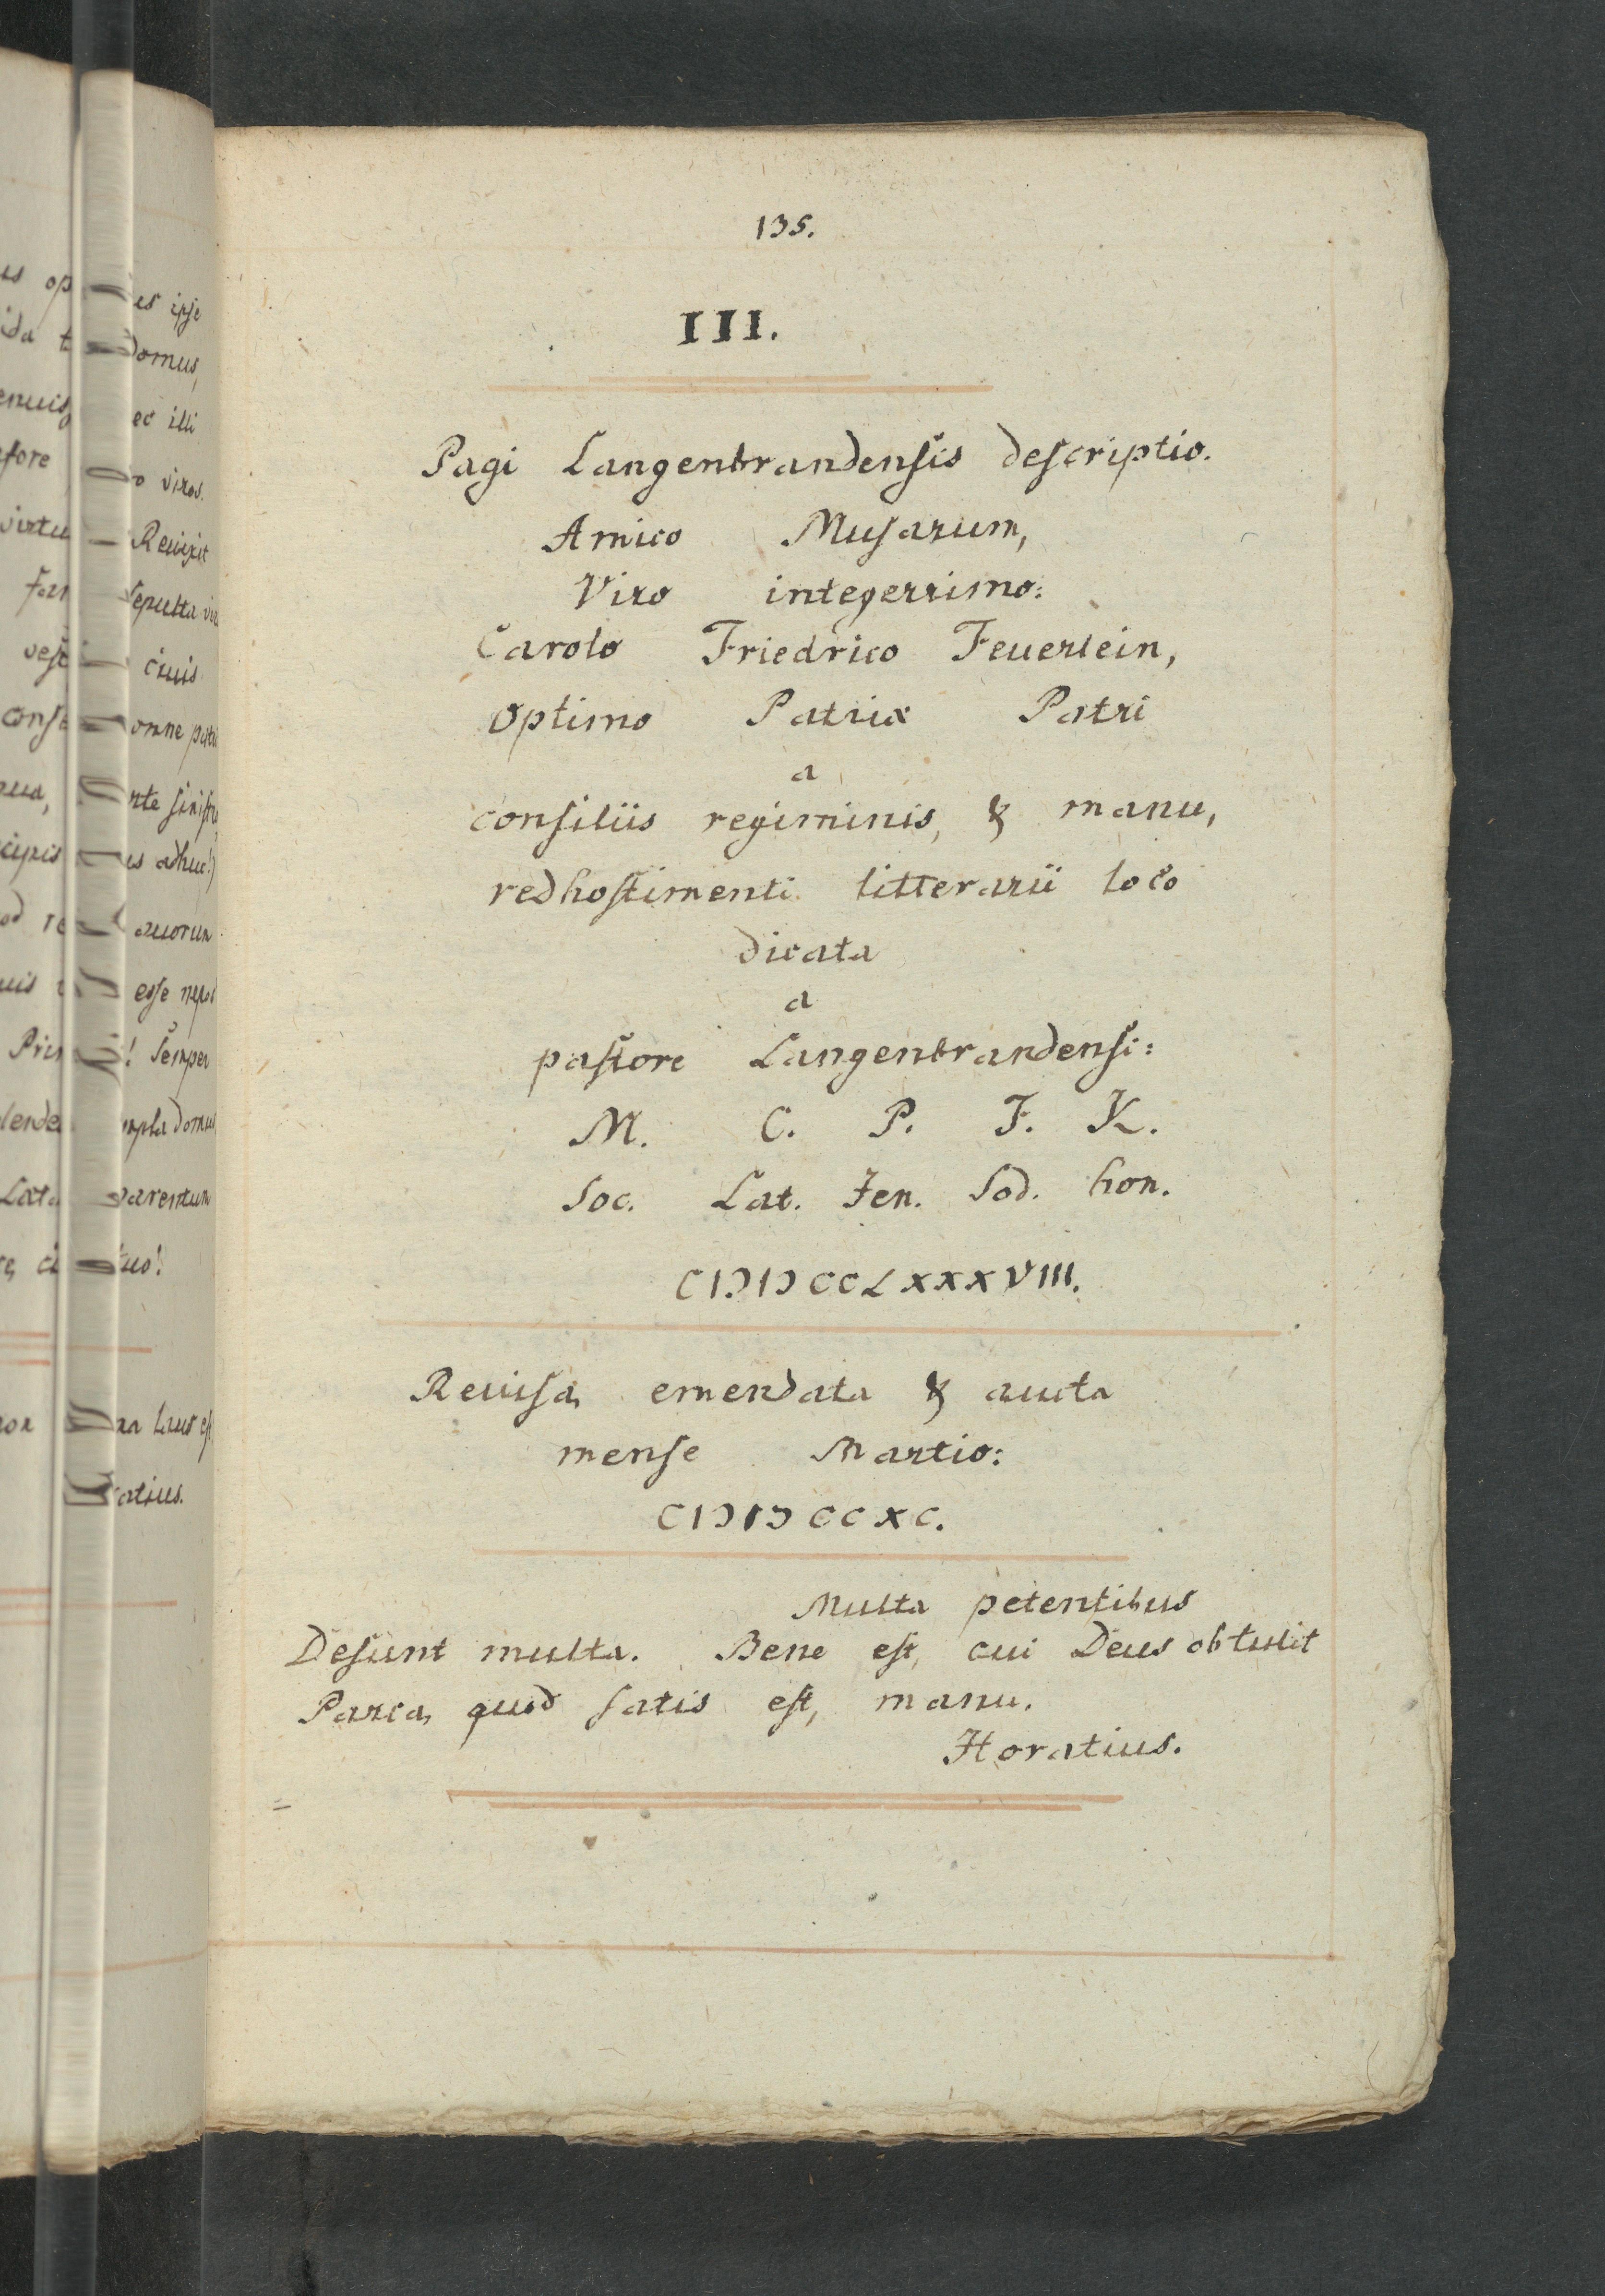 135.
III.
Pagi Langenbrandensis descriptio.
Amico Musarum,
Viro integerrimo:
Carolo Friedrico Feuerlein,
optimo Patriæ Patri
a
consiliis regiminis, & manu,
redhostimenti litterarii loco
dicata
a
pastore Langenbrandensi:
M. C. P. F. K.
Soc. Lat. Jen. Sod. hon.
CIƆIƆCCLXXXVIII.
Reuisa, emendata & aucta
mense Martio:
CIƆIƆCCXC.
Multa petentibus
Desunt multa. Bene est, cui Deus obtulit
Parca, quod satis est, manu.
Horatius.